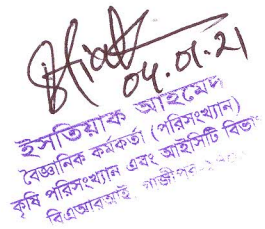 04.01.21
ইসতিয়াক আহমেদ
বৈজ্ঞানিক কর্মকর্তা (পরিসংখ্যান)
কৃষি পরিসংখ্যান এবং আইসিটি বিভাগ
বিএআরআই গাজীপুর